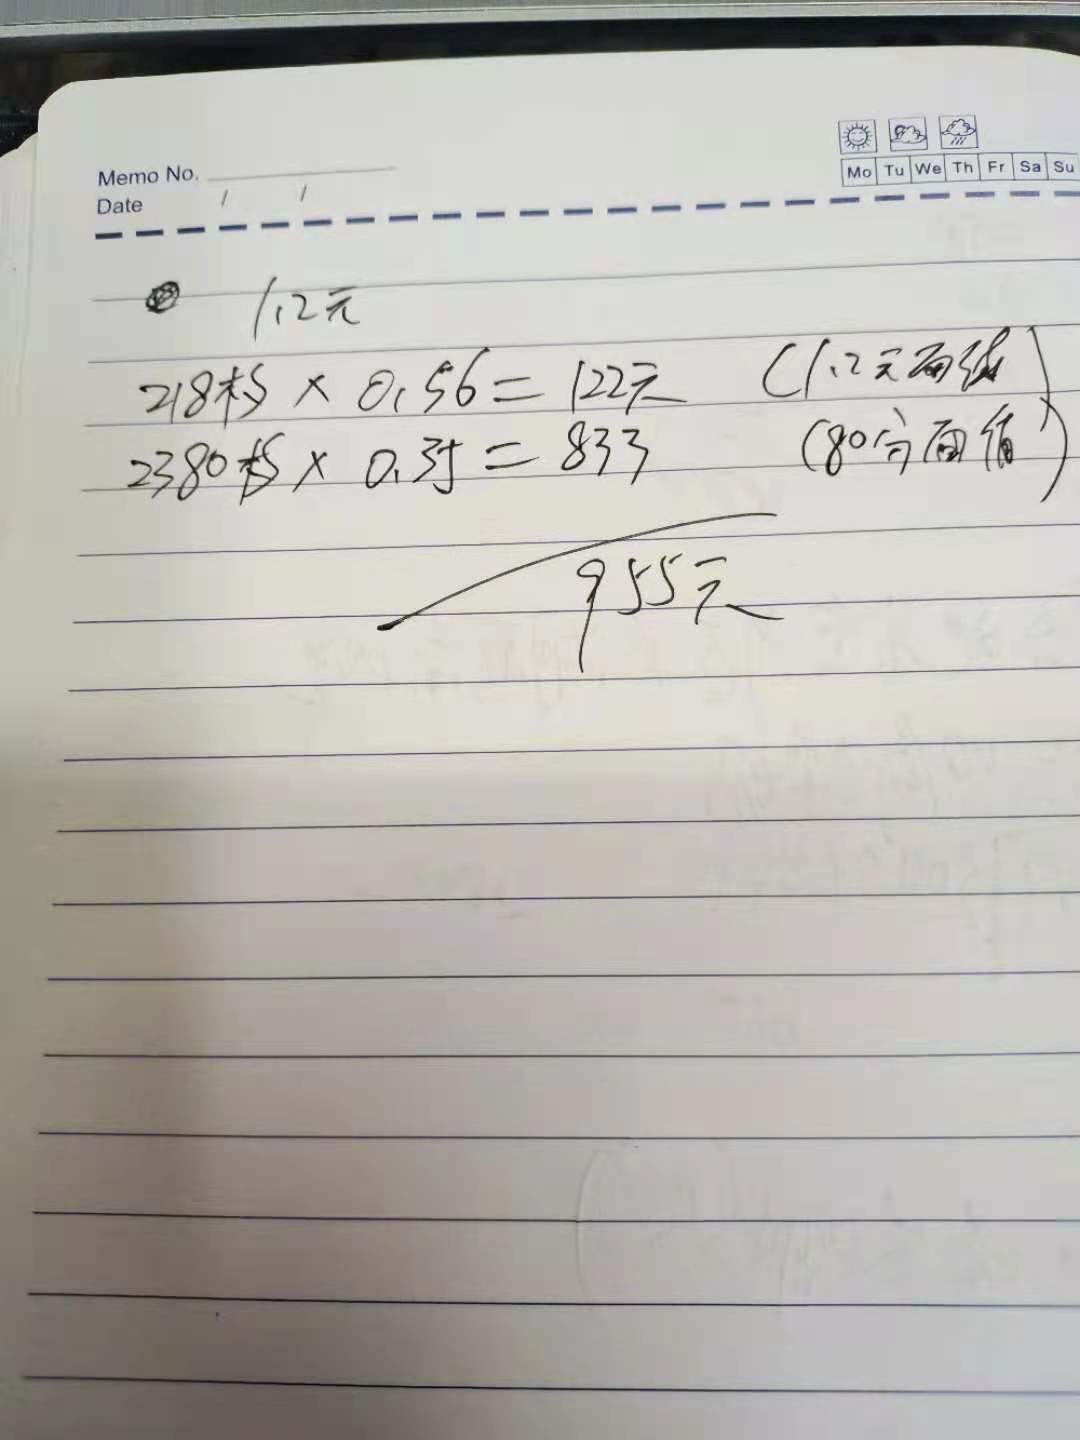 Memo No.
Date / /
Mo Tu We Th Fr Sa Su
1.2元
218枚 × 0.56 = 122元 (1.2元面值)
2380枚 × 0.35 = 833 (80分面值)
955元